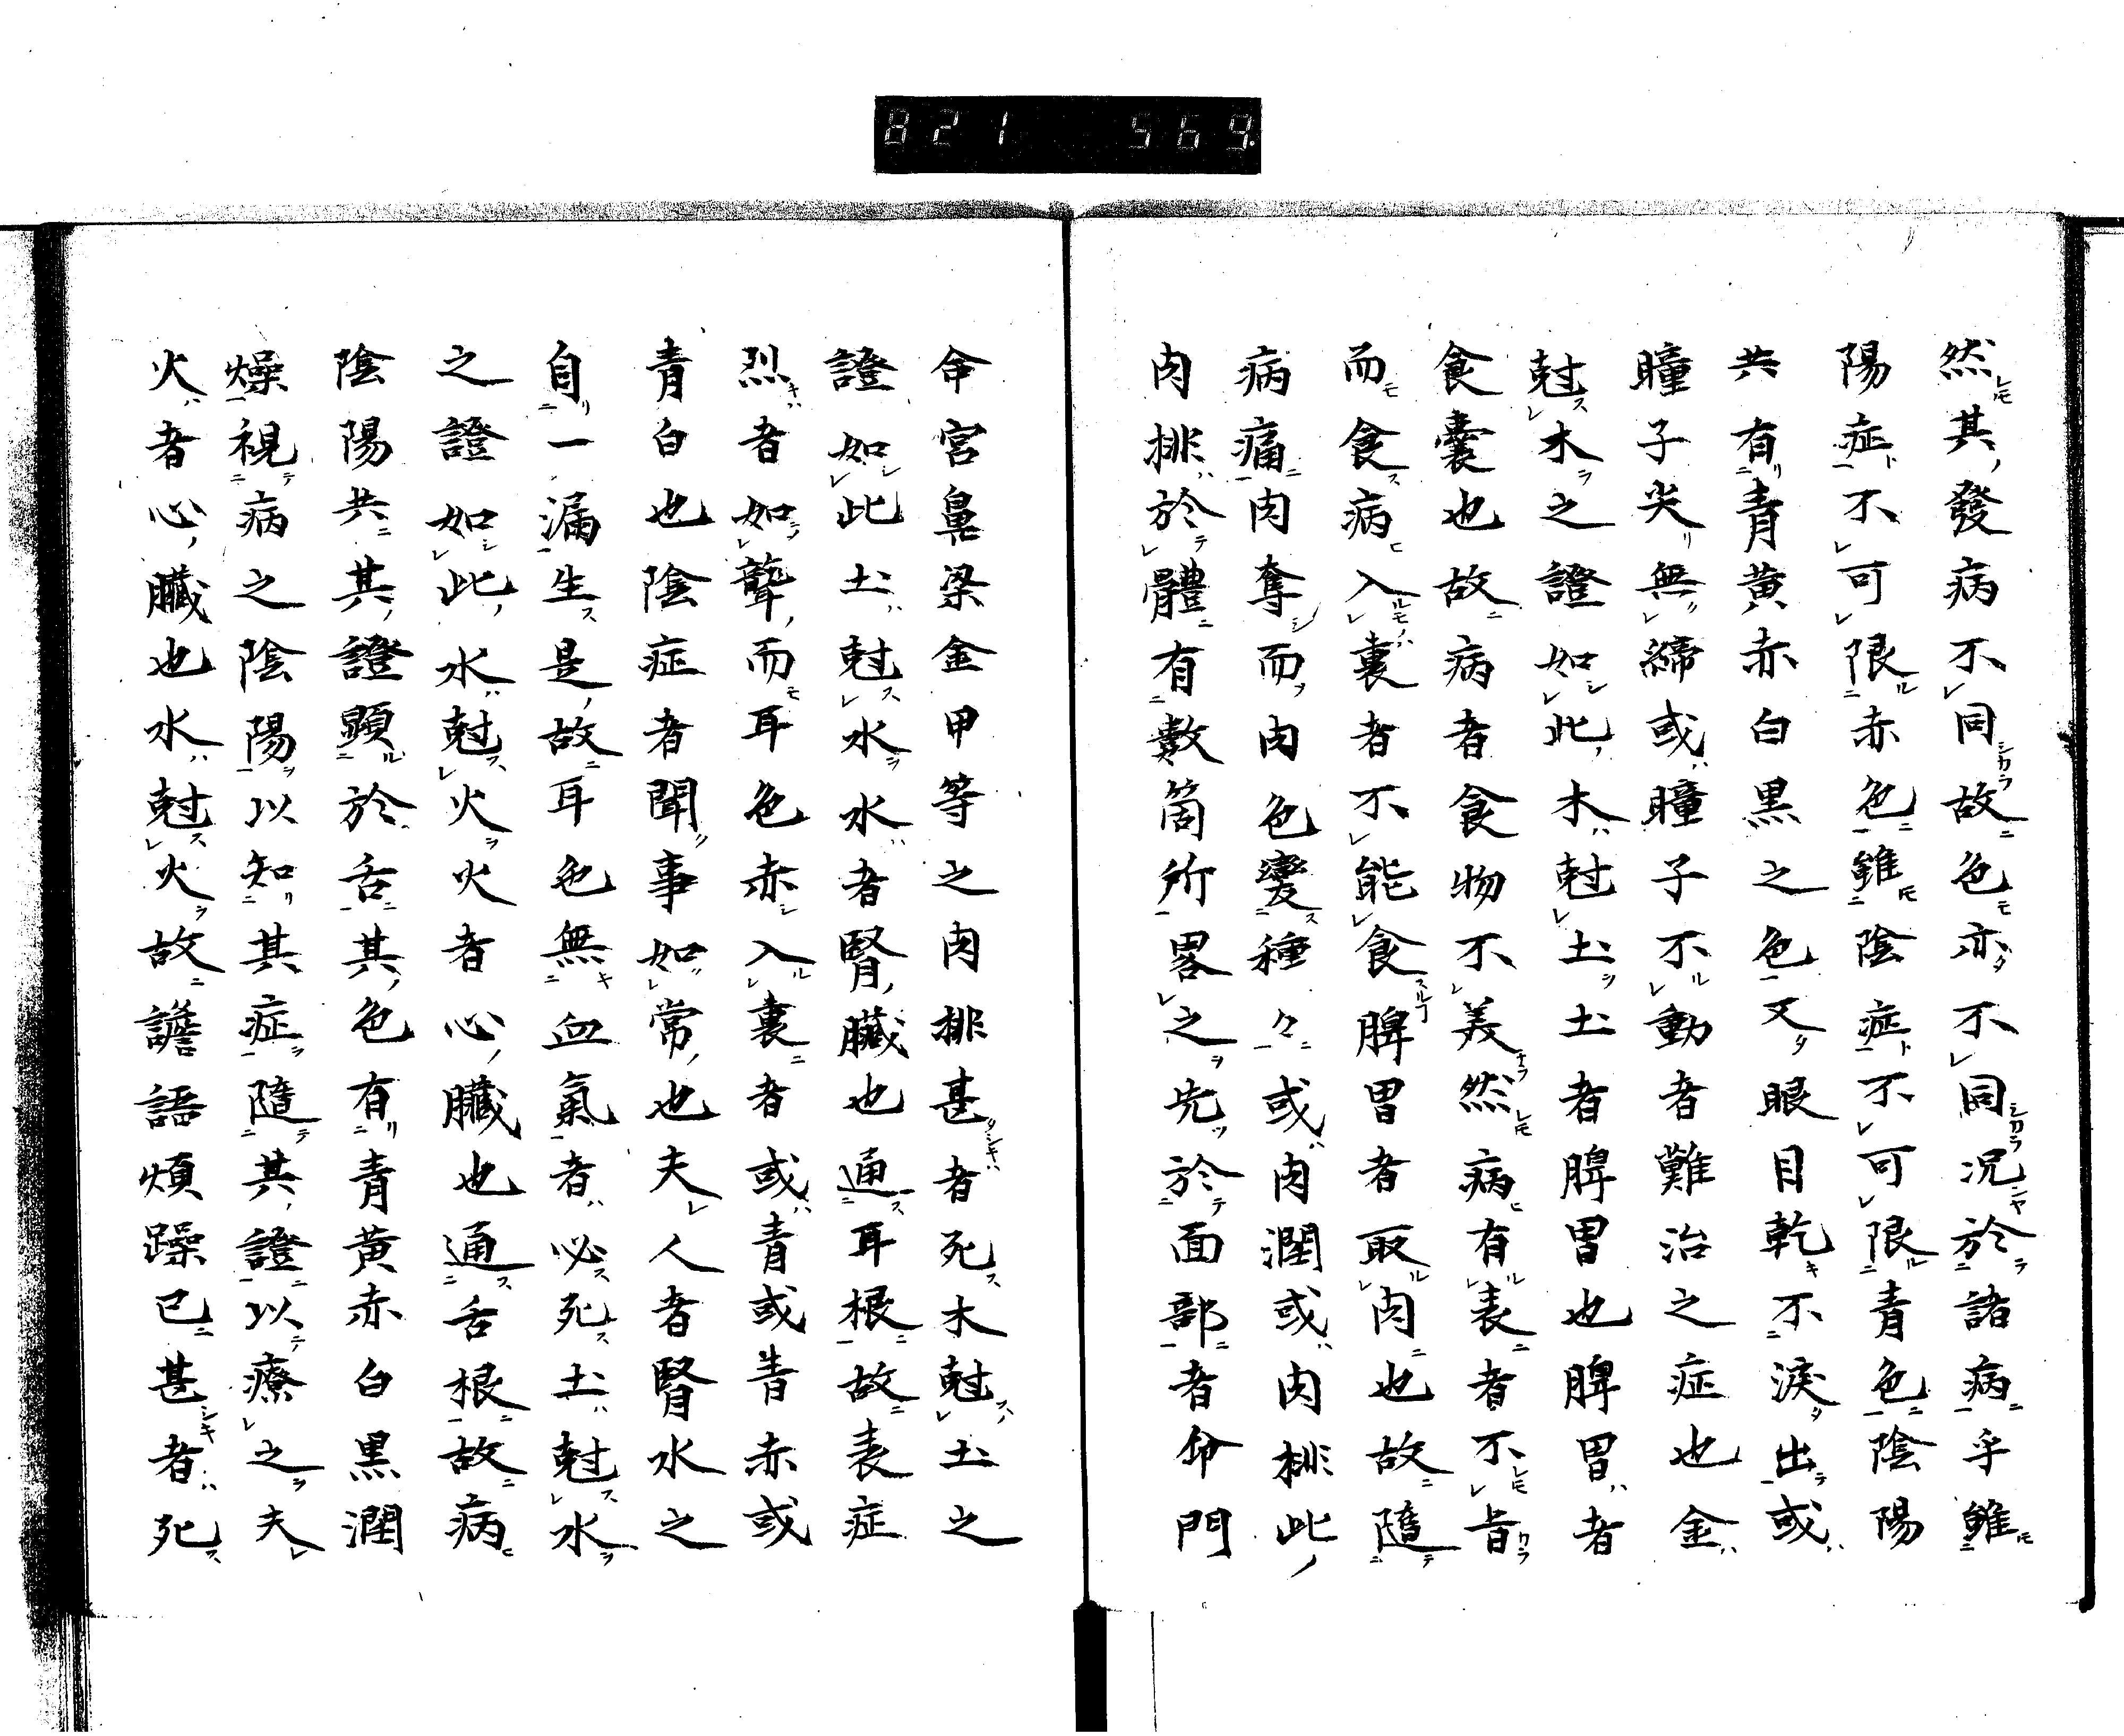 821 569.
然其發病不同故色亦不同況於諸病乎雖
陽症不可限赤色雖陰症不可限青色陰陽
共有青黄赤白黒之色又眼目乾不淚出或
瞳子尖無締或瞳子不動者難治之症也金
尅木之證如此木尅土土者脾胃也脾胃者
食嚢也故病者食物不美然病有表者不旨
而食病入裏者不能食脾胃者取肉也故隨
病痛肉奪而肉色變種々或肉潤或肉排此
肉排於體有數箇所畧之先於面部者命門
命宮鼻梁金甲等之肉排甚者死木尅土之
證如此土尅水水者腎臓也通耳根故表症
烈者如聾而耳色赤入裏者或青或青赤或
青白也陰症者聞事如常也夫人者腎水之
自一漏生是故耳色無血氣者必死土尅水
之證如此水尅火火者心臓也通舌根故病
陰陽共其證顕於舌其色有青黄赤白黒潤
燥視病之陰陽以知其症隨其證以療之夫
火者心臓也水尅火故譫語煩躁已甚者死